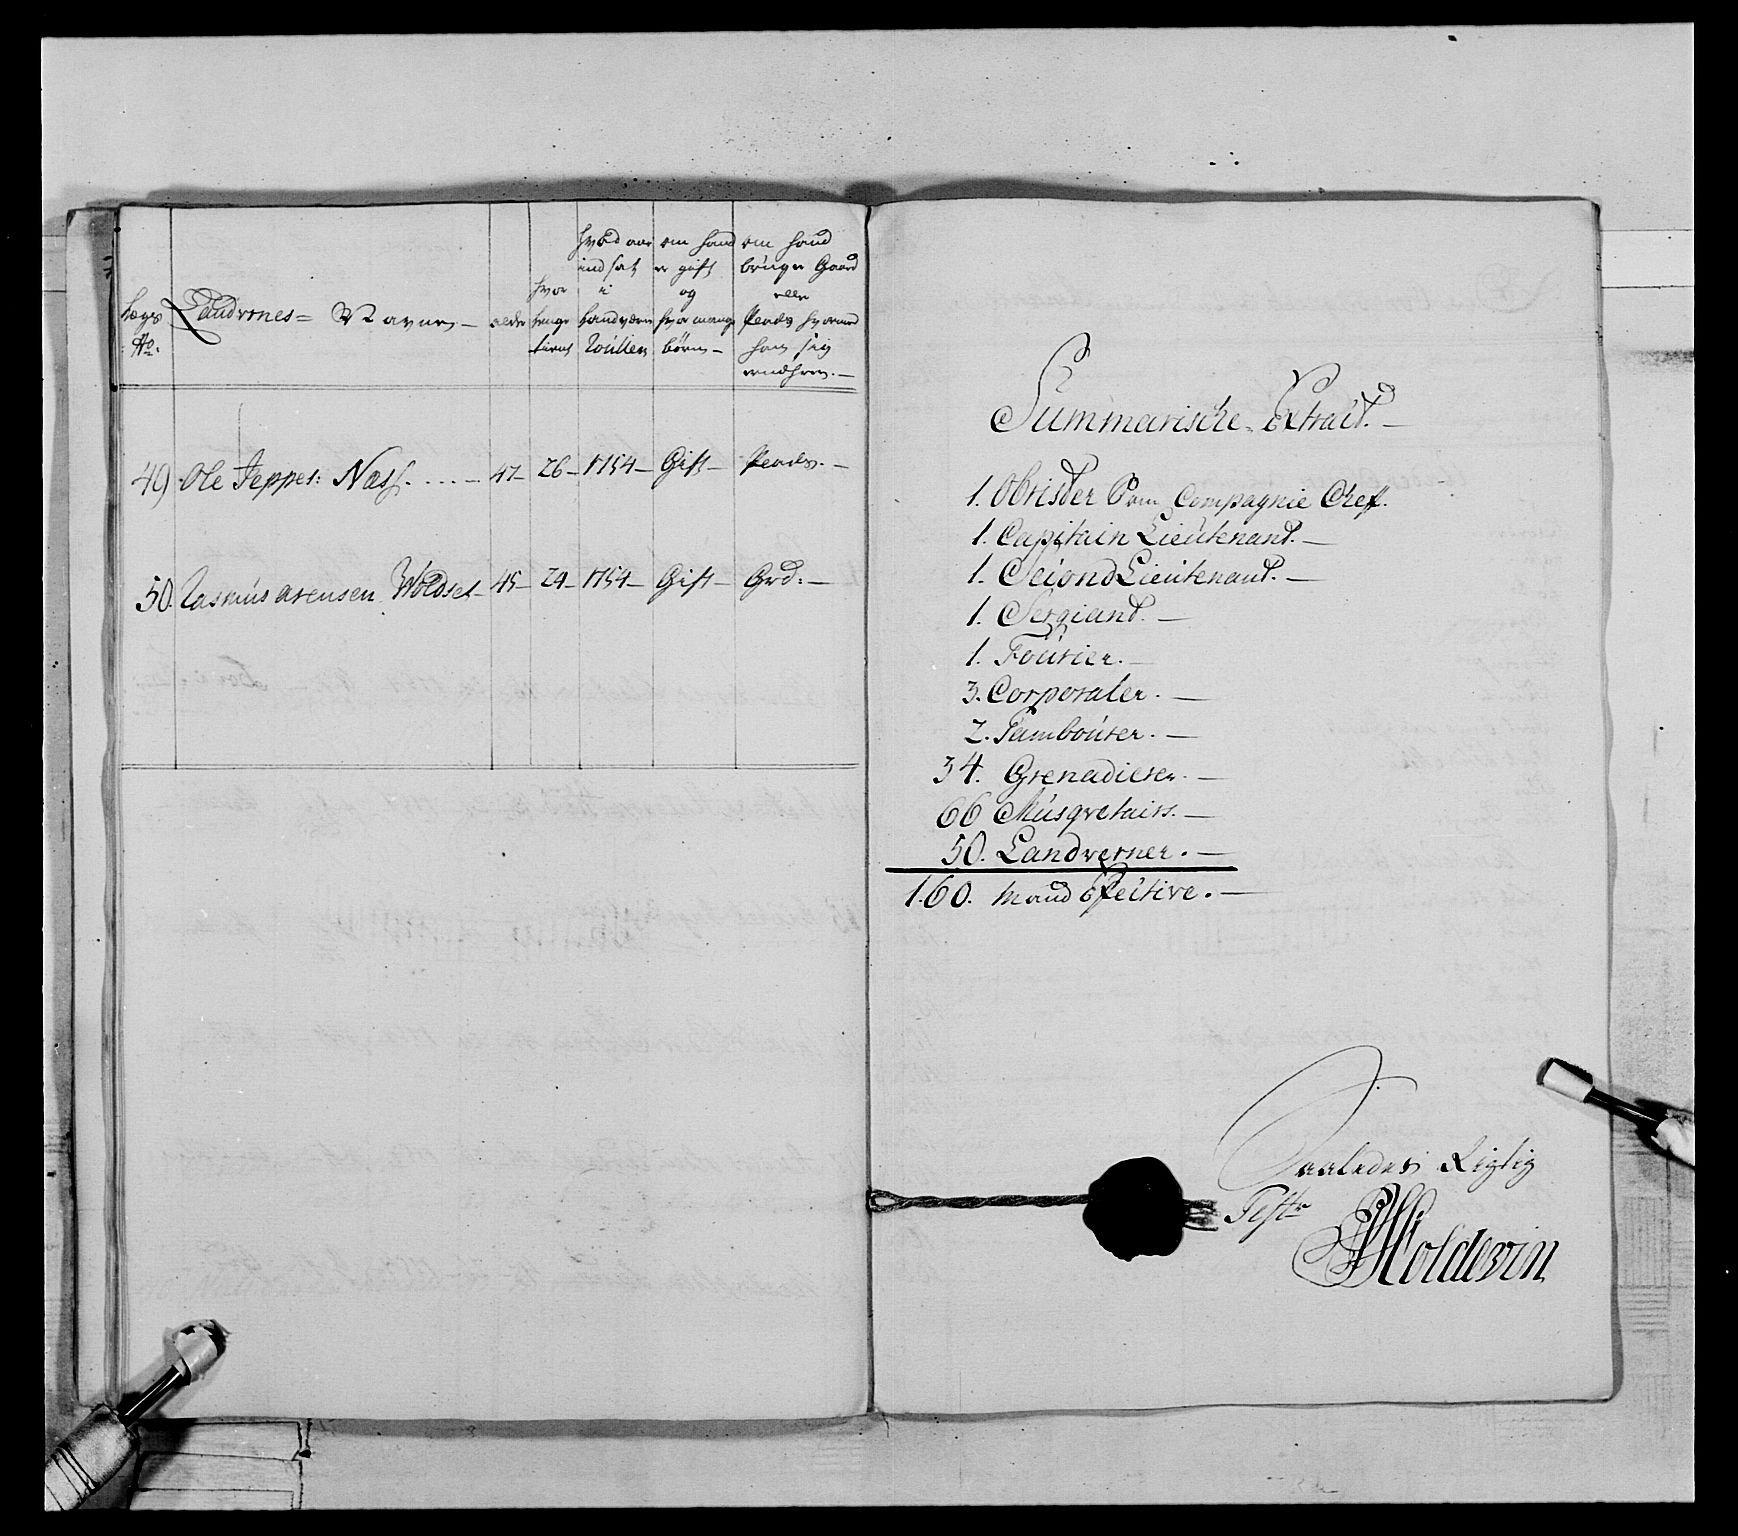 Lægs No:
Landvernes= Navne,
alder
hvor lenge tient
hvad aar ind sat i Landværn Roullen
om hand er gift og hvor mange børn
om hand bruger Gaard eller Plads hvormed han sig ernæhrer.
49) Ole Jeppes: Næss. . . . . 47 26 1754 Gift Plads.
50. Rasmus arensen Woldset 45 24 1754 Gift Grd:
Summarische Extract.
1. Obrister som Compagnie Cheff.
1. Capitain Lieutenant.
1. Second Lieutenant.
1. Sergiant.
1. Fourier.
3. Corporaler.
2. Tambourer.
34. Grenadierer.
66 Musqvetairs.
50. Landverner.
160. Mand Effective.
Saaledes Rigtig
Test
Holdevin